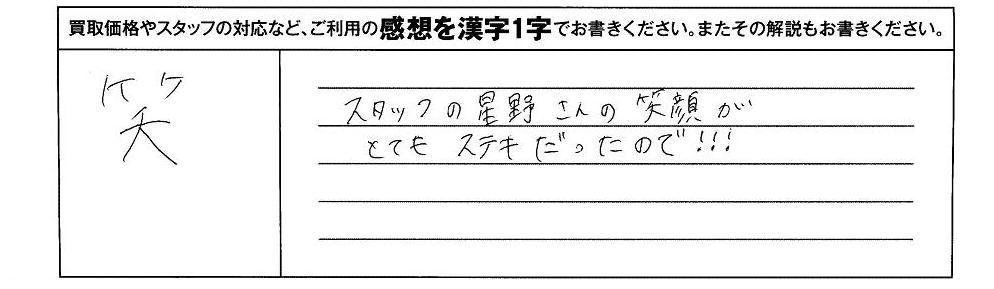 買取価格やスタッフの対応など、ご利用の感想を漢字1字でお書きください。またその解説もお書きください。
笑
スタッフの星野さんの笑顔が
とてもステキだったので!!!